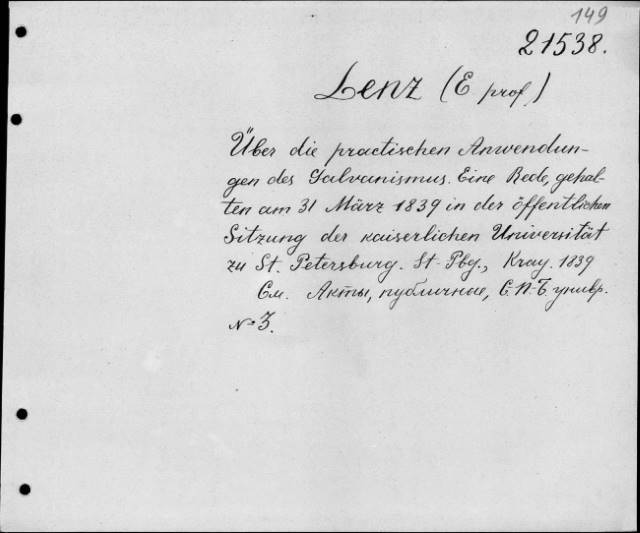 149
21538.
Lenz (E prof.)
Über die practischen Anwendun-
gen des Galvanismus. Eine Rede, gehal-
ten am 31 März 1839 in der öffentlichen
Sitzung der kaiserlichen Universität
zu St. Petersburg. St-Pbg., Kray. 1839
См. Акты, публичные, С-П-Б универ.
№ 3.